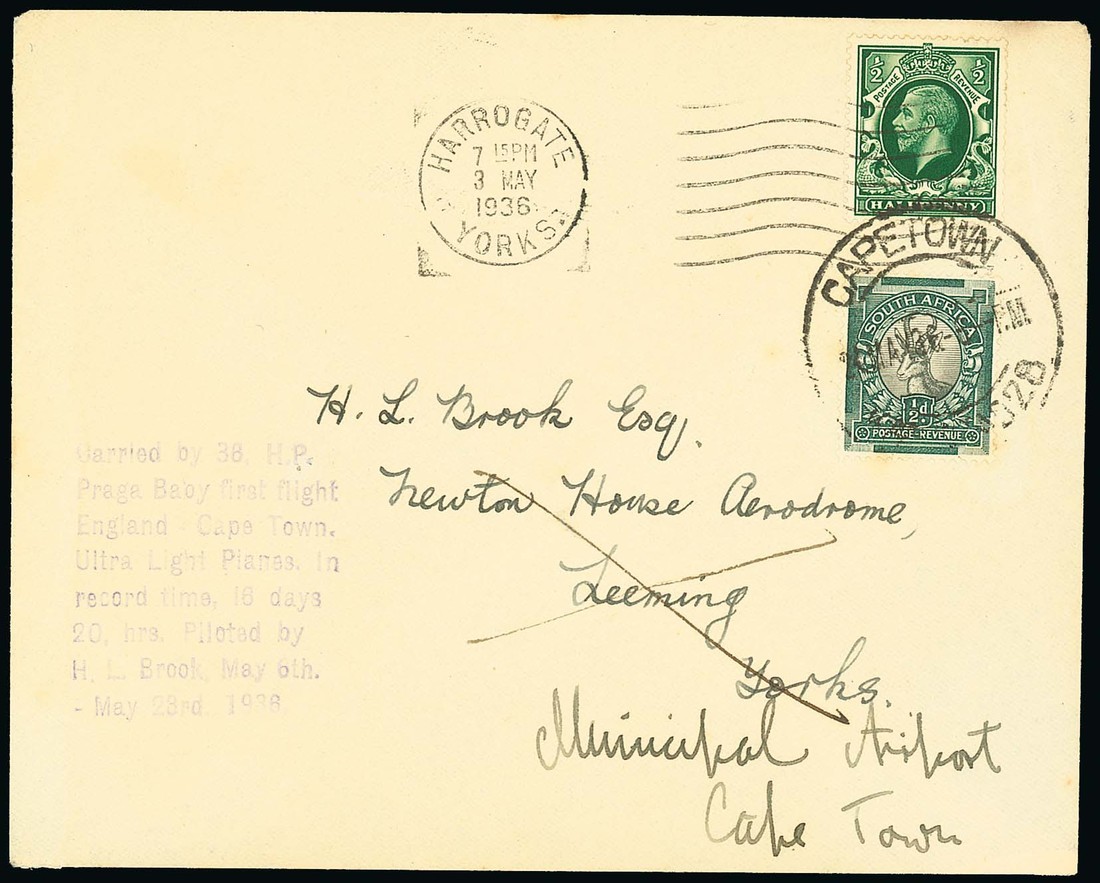 HARROGATE
7 15PM
3 MAY
1936
YORKS
½ ½
POSTAGE REVENUE
CAPETOWN
P.M.
SOUTH AFRICA
½d
POSTAGE-REVENUE
H. L. Brook Esq.
Newton House Aerodrome,
Leeming
Yorks.
Municipal Airport
Cape Town
Carried by 38, H.P.
Praga Baby first flight
England - Cape Town.
Ultra Light Planes. In
record time, 16 days
20, hrs. Piloted by
H. L. Brook, May 6th.
- May 23rd. 1936